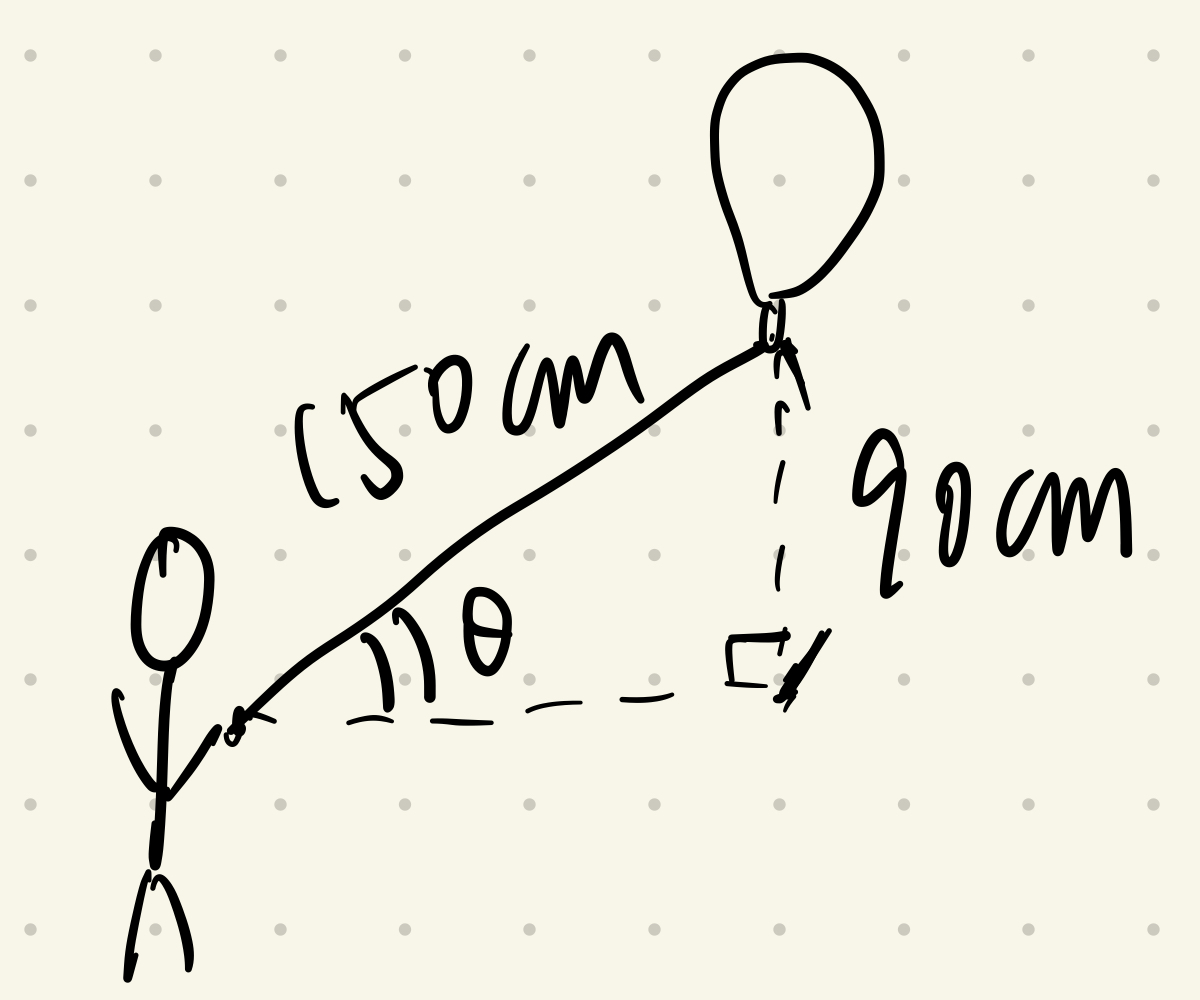 150cm
90cm
θ